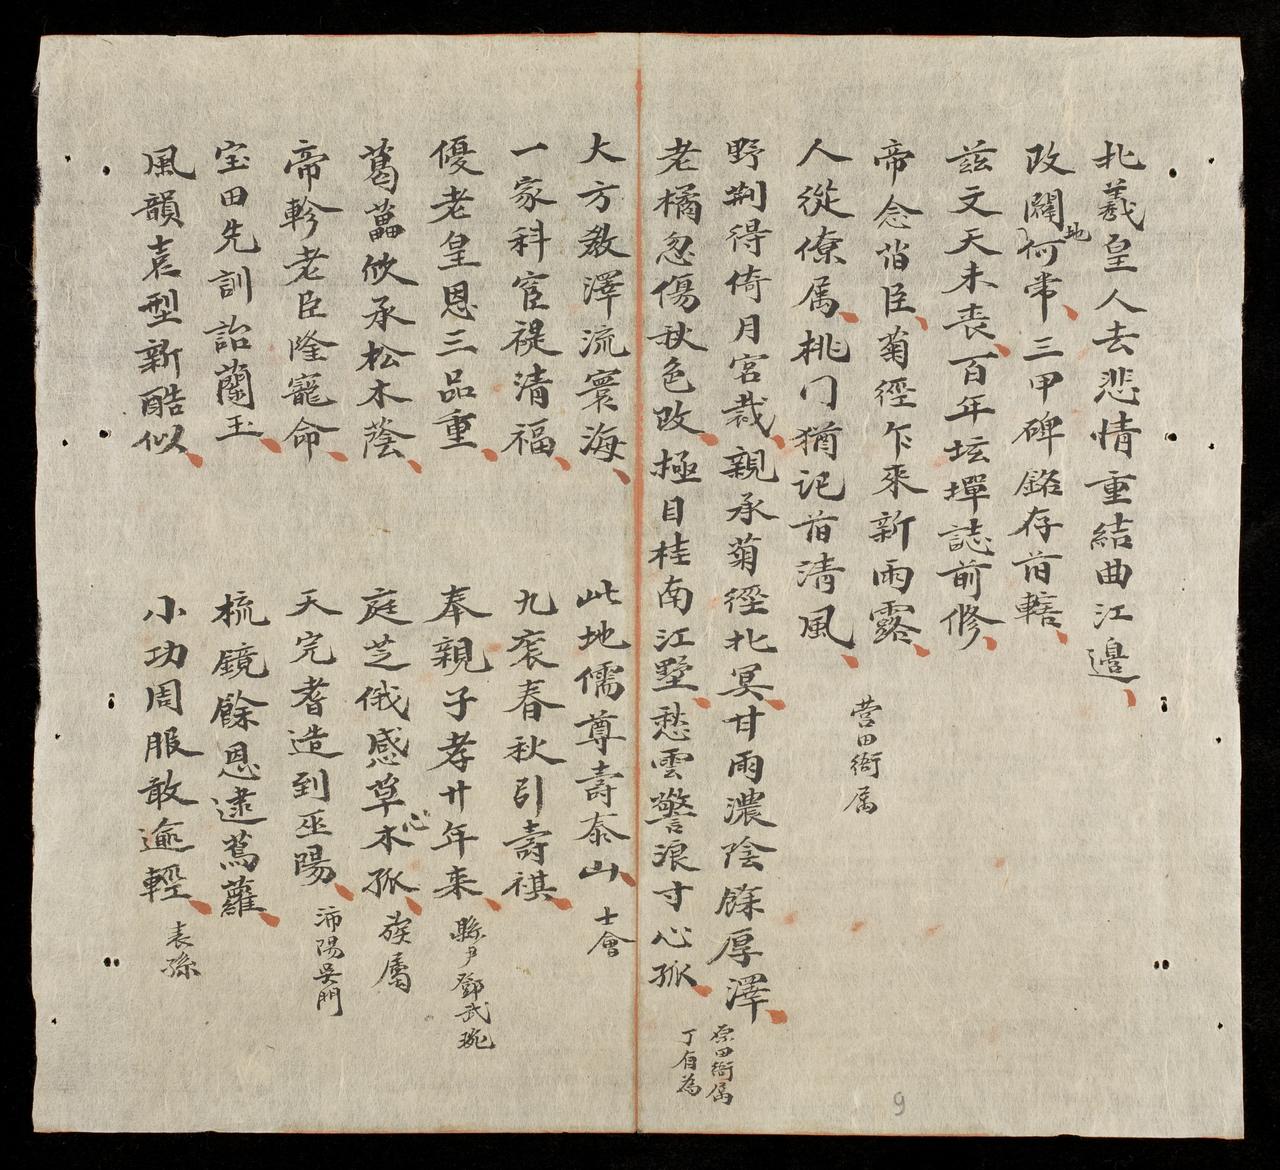 北羲皇人去悲情重結曲江邊
改闢地何常三甲碑銘存旹轄
兹文天未丧百年坛墠誌前修
帝念旹臣菊徑乍來新雨露
人從僚属桃门猶记旹清風
营田衙属
野荆得倚月宮栽親承菊徑北冥甘雨濃陰餘厚澤
原田衙属
老橘忽傷秋色改極目桂南江墅愁雲警浪寸心孤
丁有為
大方教澤流寰海 此地儒尊壽泰山 士會
一家科宦禔清福 九袠春秋引壽祺
優老皇恩三品重 奉親子孝廿年来 縣尹鄧武琬
葛藟攸承松木蔭 庭芝俄感草木心孤 族属
帝軫老臣隆寵命 天完耆造到巫陽 沛陽吴門
宝田先訓詒蘭玉 梳鏡餘恩逮蔦蘿
風韻袁型新酷似 小功周服敢逾輕 表孫
9